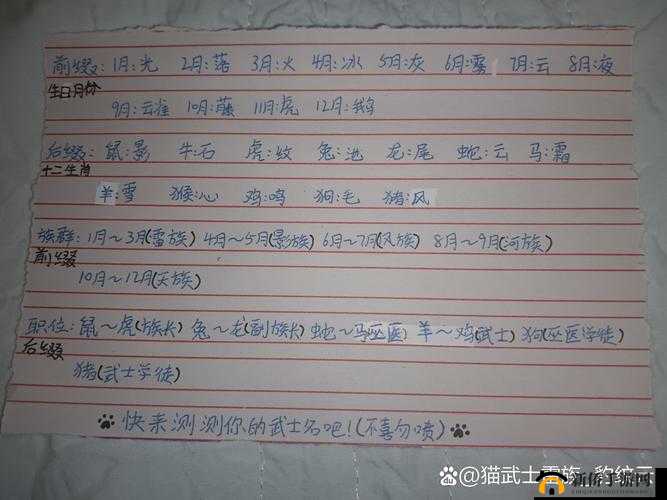 前缀: 1月:光 2月:落 3月:火 4月:冰 5月:灰 6月:雾 7月:云 8月:夜
生日月份
9月:云雀 10月:藤 11月:虎 12月:鹅
后缀: 鼠:影 牛:石 虎:纹 兔:池 龙:尾 蛇:云 马:霜
十二生肖
羊:雪 猴:心 鸡:鸣 狗:毛 猪:风
族群: 1月~3月(雷族) 4月~5月(影族) 6月~7月(风族) 8月~9月(河族)
前缀
10月~12月(天族)
职位: 鼠~虎(族长) 兔~龙(副族长) 蛇~马(巫医) 羊~鸡(武士) 狗(巫医学徒)
后缀
猪(武士学徒)
快来测测你的武士名吧!(不喜勿喷)
@猫武士雷族-豹纹云
新侨手游网